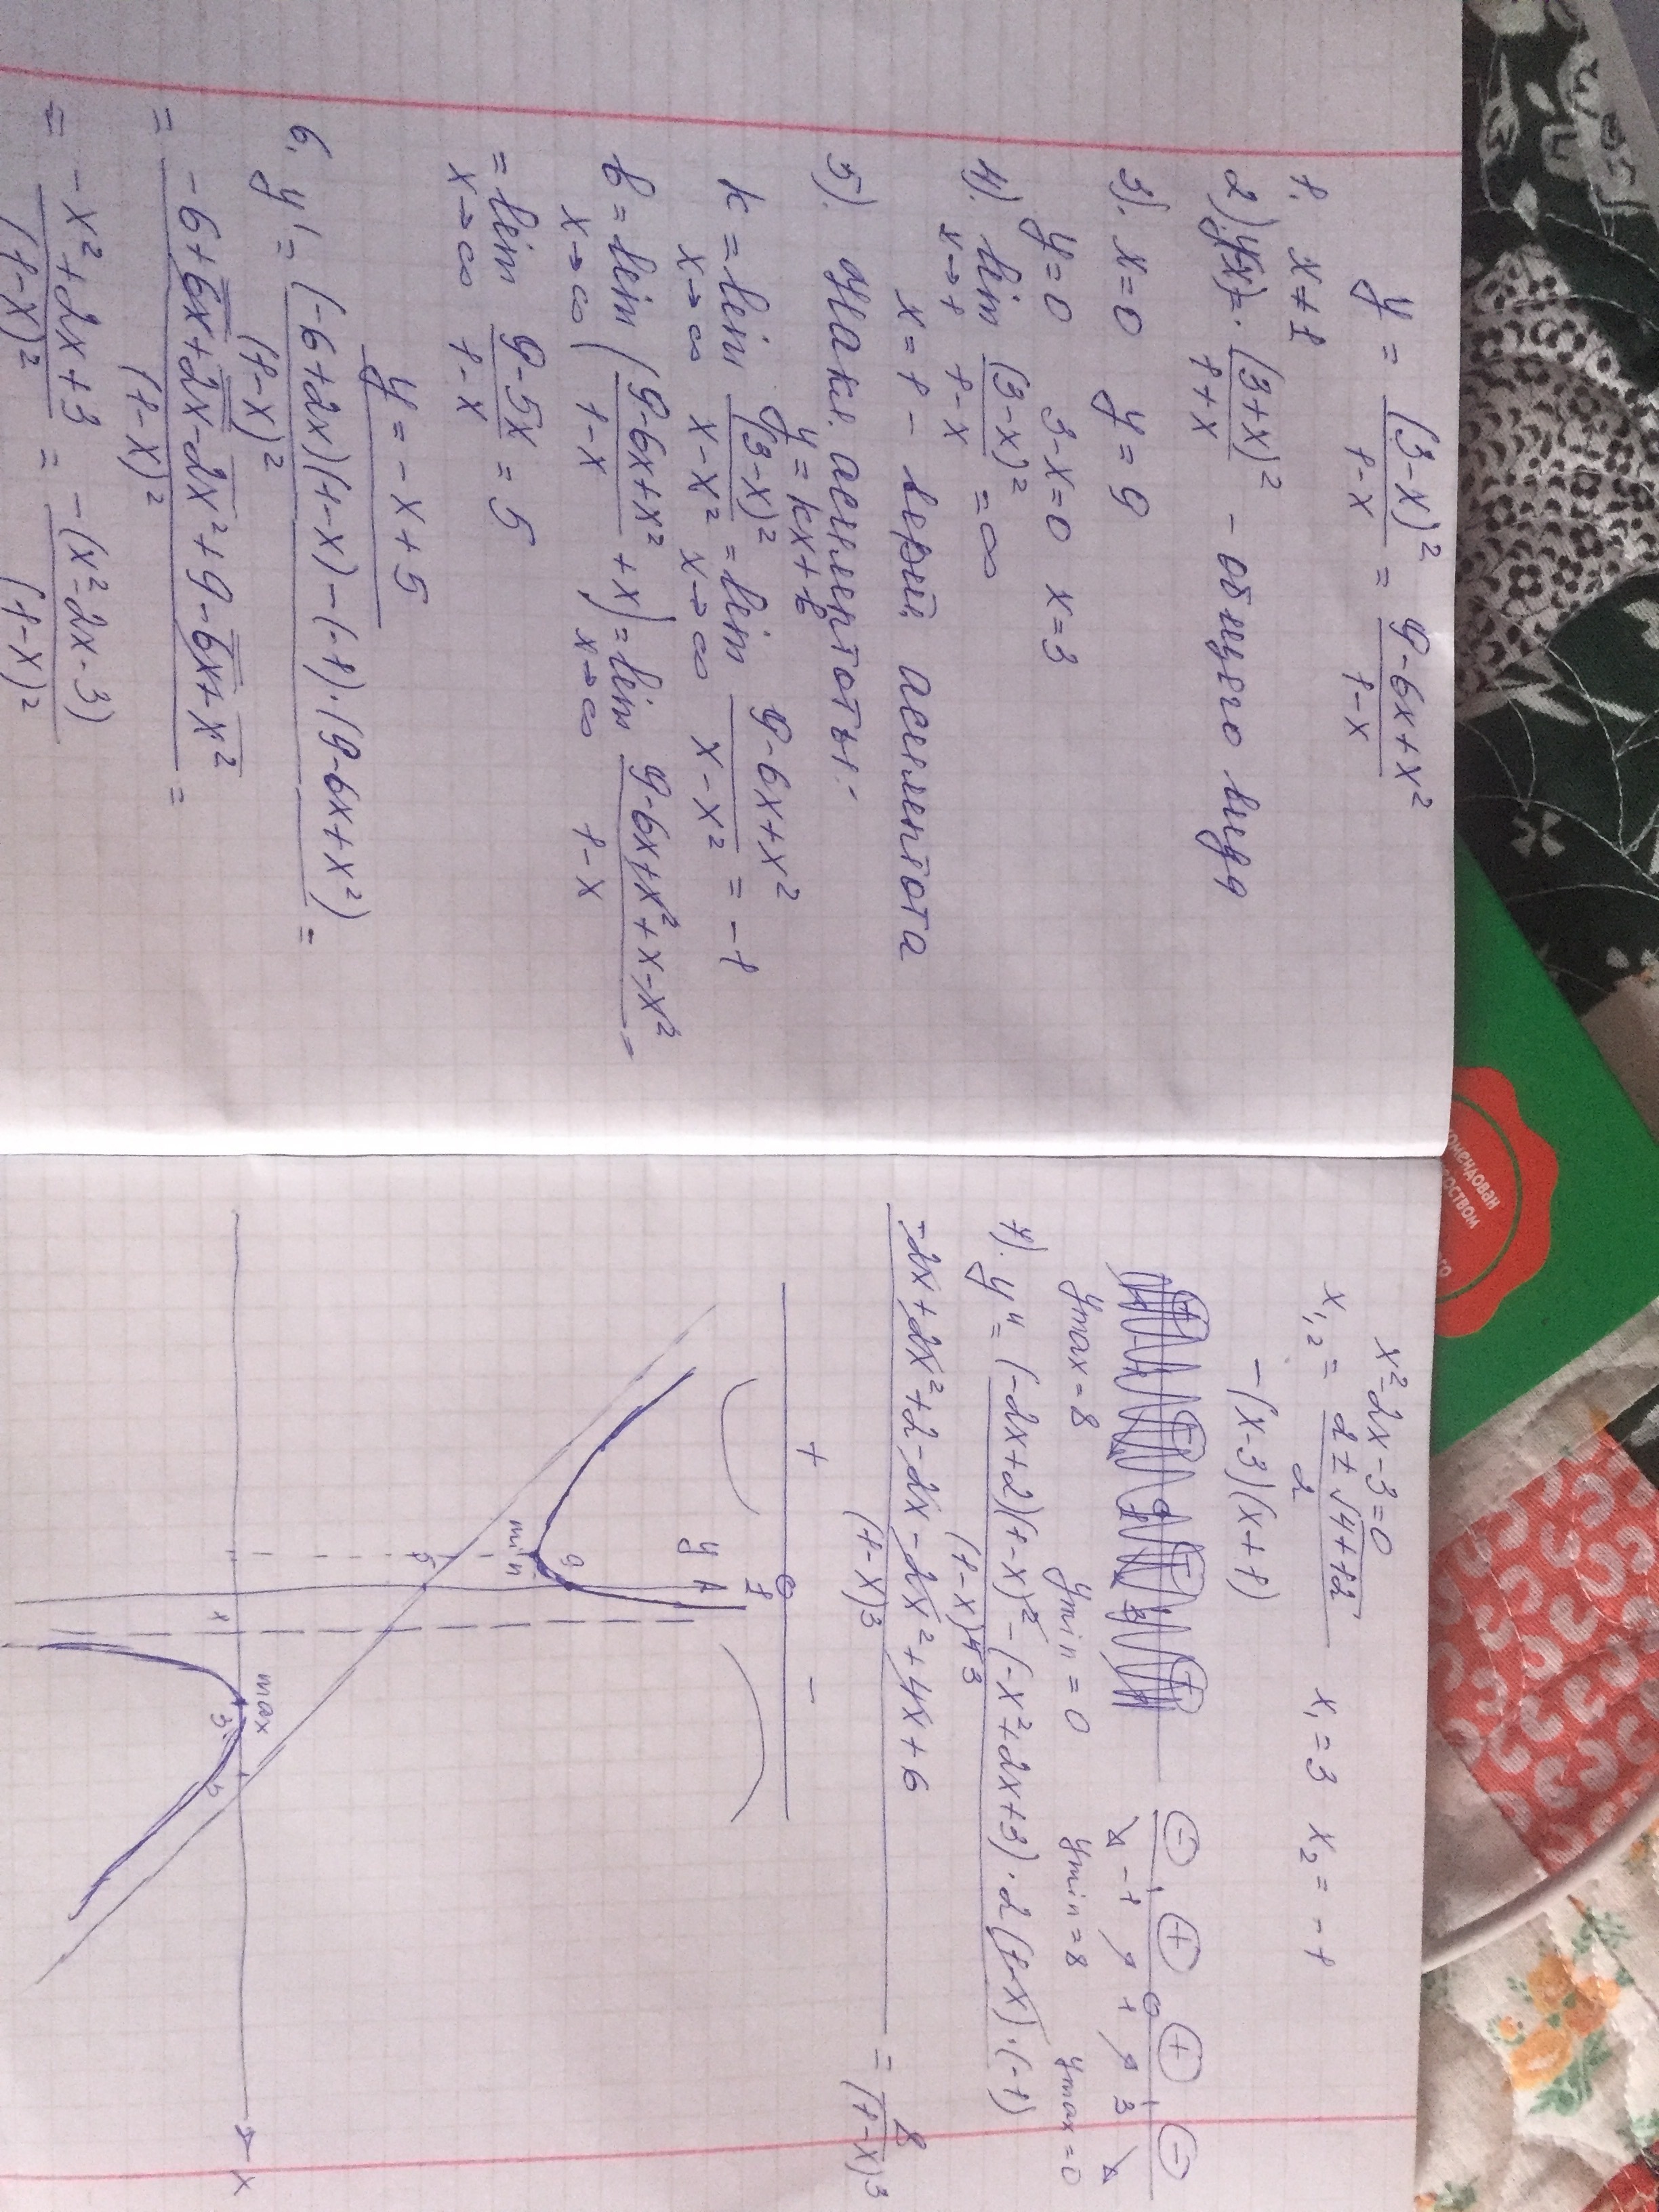 y = (3-x)²/(1-x) = (9-6x+x²)/(1-x)
1. x ≠ 1
2) y(-x) = (3+x)²/(1+x) - общего вида
3). x=0 y=9
y=0 3-x=0 x=3
4). lim x→1 (3-x)²/(1-x) = ∞
x=1 - верт. асимптота
5). Накл. асимптоты:
y=kx+b
k = lim x→∞ (3-x)²/(x-x²) = lim x→∞ (9-6x+x²)/(x-x²) = -1
b = lim x→∞ ((9-6x+x²)/(1-x) + x) = lim x→∞ (9-6x+x²+x-x²)/(1-x) =
= lim x→∞ (9-5x)/(1-x) = 5
y = -x+5
6. y' = ((-6+2x)(1-x)-(-1)·(9-6x+x²))/(1-x)² =
= (-6+6x+2x-2x²+9-6x+x²)/(1-x)² =
= (-x²+2x+3)/(1-x)² = -(x²-2x-3)/(1-x)²
x²-2x-3=0
x₁,₂ = (2±√4+12)/2 x₁=3 x₂=-1
-(x-3)(x+1)
- + + -
-1 1 3
ymax=8 ymin=0 ymin=8 ymax=0
7). y'' = ((-2x+2)(1-x)²-(-x²+2x+3)·2(1-x)·(-1))/(1-x)⁴ ³
(-2x+2x²+2-2x-2x²+4x+6)/(1-x)³ = 8/(1-x)³
+ -
1
y
9
min
5
1
max
3
5
x